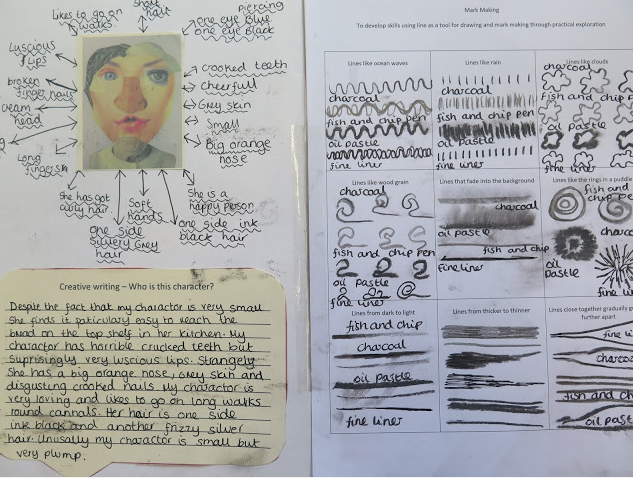 Likes to go on
walks
Short
hair
piercing
one eye blue
one eye black
Luscious
lips
crooked teeth
broken
finger nails
cheerfull
Grey skin
head
Small
Big orange
nose
Long
fingers
She has got
curly hair
Soft
hands
She is a
happy person
one side
Silvery Grey
hair
one side ink
black hair
Creative writing – Who is this character?
Despite the fact that my character is very small
She finds it particulary easy to reach the
bread on the top shelf in her kitchen. My
character has horrible crucked teeth but
Suprisingly very luscious lips. Strangely
She has a big orange nose, Grey skin and
disgusting crooked nails. My character is
very loving and likes to go on long walks
round cannals. Her hair is one side
ink black and another frizzy silver
hair. Unusally my character is small but
very plump.
Mark Making
To develop skills using line as a tool for drawing and mark making through practical exploration
Lines like ocean waves
charcoal
fish and chip pen
oil pastle
fine liner
Lines like rain
charcoal
fish and chip pen
oil pastle
fine liner
Lines like clouds
charcoal
fish and chip p
oil pastle
fine liner
Lines like wood grain
charcoal
fish and chip pen
oil pastle
fine liner
Lines that fade into the background
charcoal
oil pastle
fish and chip
Fine liner
Lines like the rings in a puddle
fish and
chip pen
charco
oil
pastle
fine li
Lines from dark to light
fish and chip
charcoal
oil pastle
fine liner
Lines from thicker to thinner
Lines close together gradually g
further apart
fine li
charcoa
fish and ch
oil past